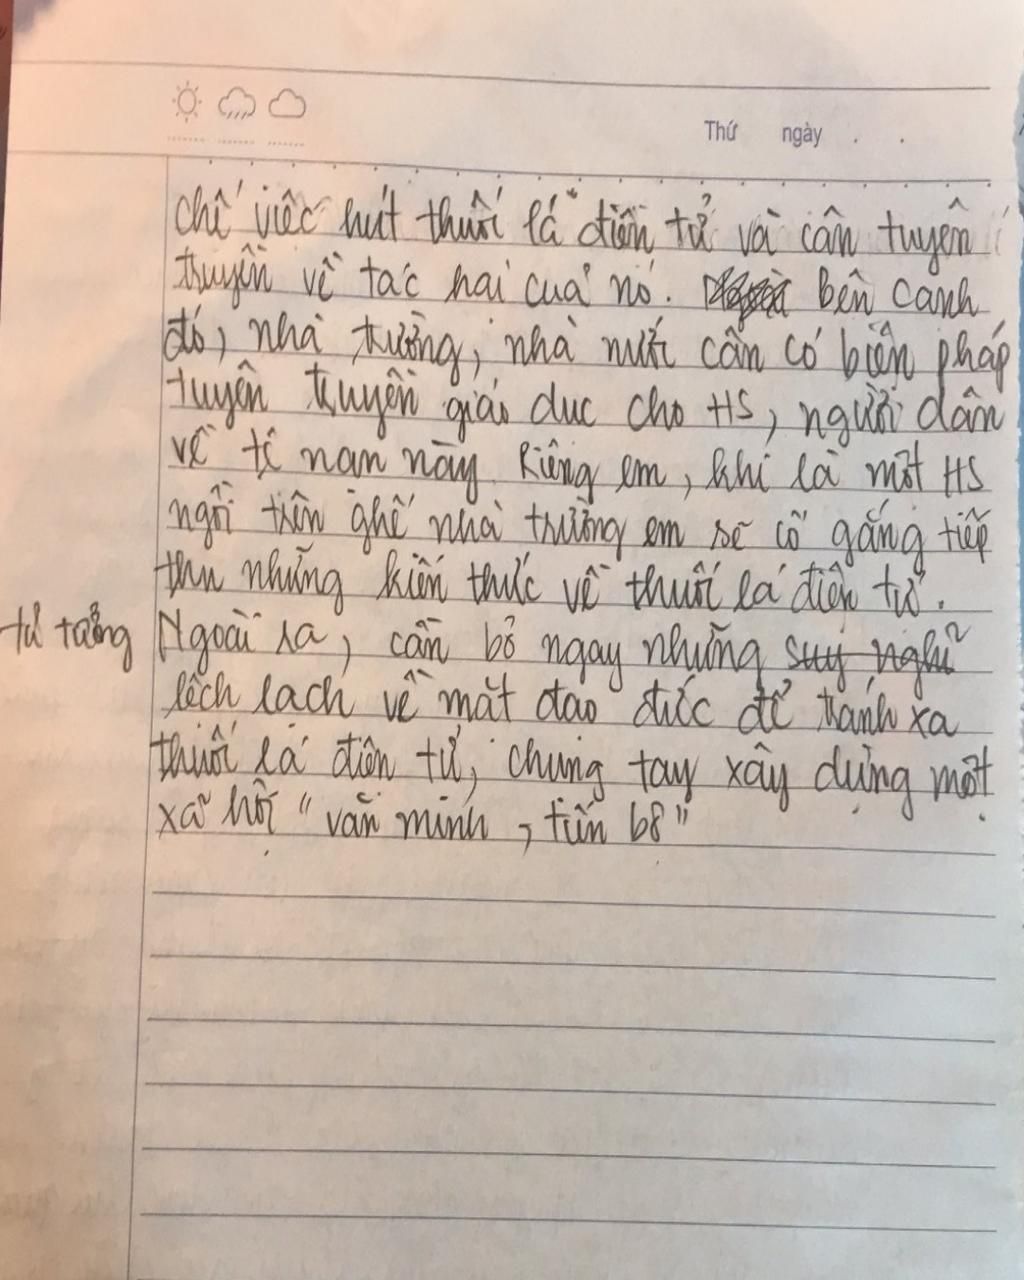 Thứ ngày . .
chế việc hút thuốc lá điện tử và cần tuyên
truyền về tác hại của nó. bên cạnh
đó, nhà trường, nhà nước cần có biện pháp
tuyên truyền giáo dục cho HS, người dân
về tệ nạn này. Riêng em, khi là một HS
ngồi trên ghế nhà trường em sẽ cố gắng tiếp
thu những kiến thức về thuốc lá điện tử.
tư tưởng Ngoài ra, cần bỏ ngay những suy nghĩ
lệch lạch về mặt đạo đức để tránh xa
thuốc lá điện tử, chung tay xây dựng một
xã hội "văn minh, tiến bộ"